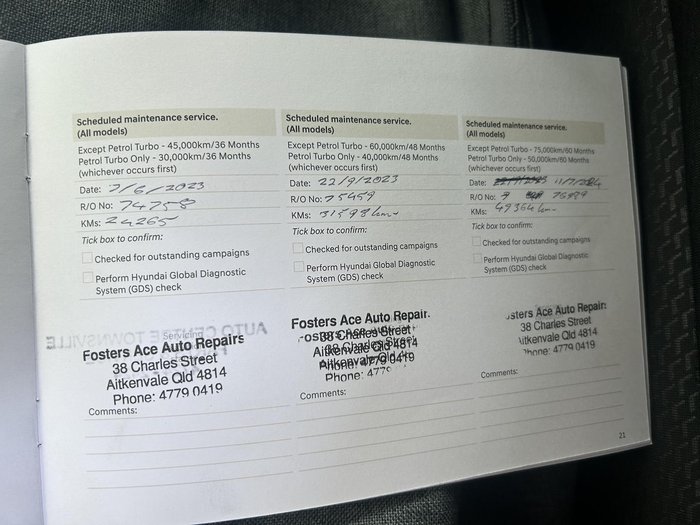 Scheduled maintenance service.
(All models)
Except Petrol Turbo - 45,000km/36 Months
Petrol Turbo Only - 30,000km/36 Months
(whichever occurs first)
Date: 7/6/2023
R/O No: 74758
KMs: 24265
Tick box to confirm:
Checked for outstanding campaigns
Perform Hyundai Global Diagnostic
System (GDS) check
AUTO CENTRE TOWNSVILLE
Servicing
Fosters Ace Auto Repairs
38 Charles Street
Aitkenvale Qld 4814
Phone: 4779 0419
Comments:
Scheduled maintenance service.
(All models)
Except Petrol Turbo - 60,000km/48 Months
Petrol Turbo Only - 40,000km/48 Months
(whichever occurs first)
Date: 22/9/2023
R/O No: 75459
KMs: 31598km
Tick box to confirm:
Checked for outstanding campaigns
Perform Hyundai Global Diagnostic
System (GDS) check
Fosters Ace Auto Repair
38 Charles Street
Aitkenvale Qld 4814
Phone: 4779 0419
Phone: 477
Comments:
Scheduled maintenance service.
(All models)
Except Petrol Turbo - 75,000km/60 Months
Petrol Turbo Only - 50,000km/60 Months
(whichever occurs first)
Date: 11/7/2024
R/O No:
KMs: 49364km
Tick box to confirm:
Checked for outstanding campaigns
Perform Hyundai Global Diagnostic
System (GDS) check
sters Ace Auto Repairs
38 Charles Street
itkenvale Qld 4814
hone: 4779 0419
Comments:
21